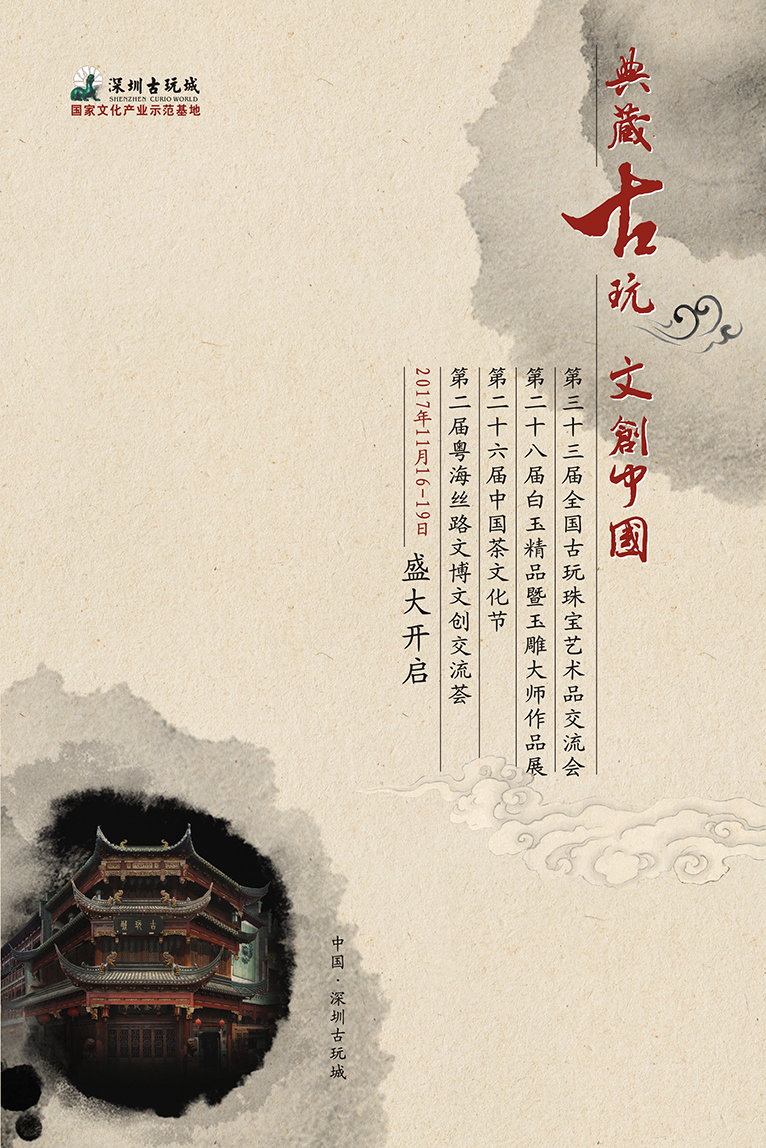 深圳古玩城
SHENZHEN CURIO WORLD
国家文化产业示范基地
典藏古玩 文創中國
第三十三届全国古玩珠宝艺术品交流会
第二十八届白玉精品暨玉雕大师作品展
第二十六届中国茶文化节
第二届粤海丝路文博文创交流荟
2017年11月16-19日 盛大开启
中国·深圳古玩城